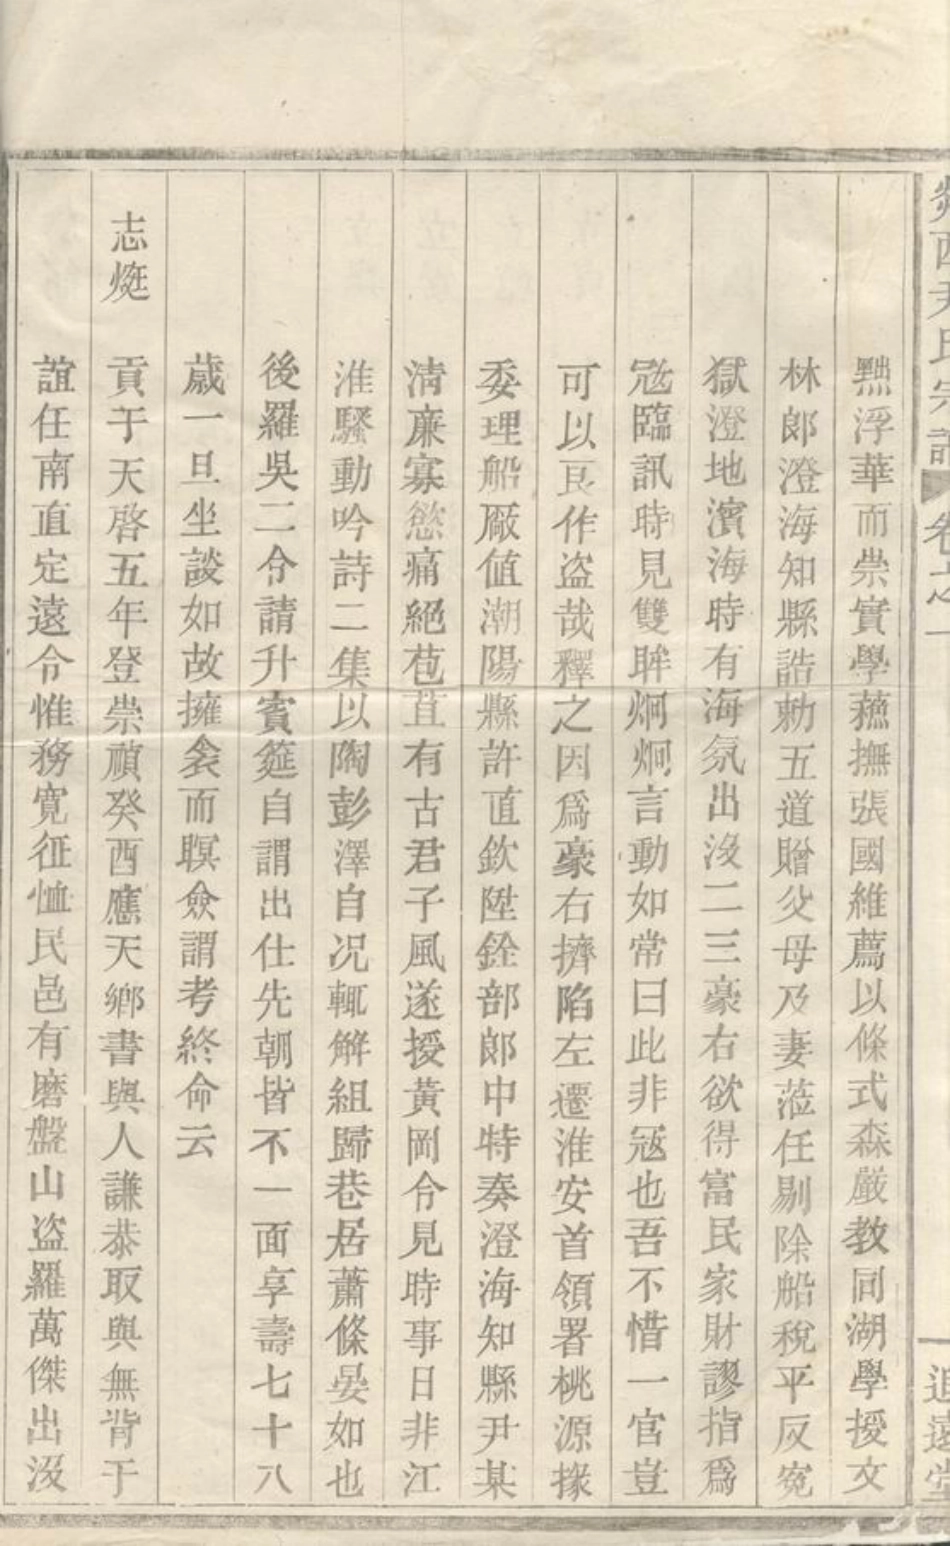 尹氏宗譜 卷之一 追遠堂
黜浮華而崇實學蘓撫張國維薦以條式森嚴教同湖學授文
林郎澄海知縣誥勅五道贈父母及妻蒞任剔除船稅平反寃
獄澄地濱海時有海氛出沒二三豪右欲得富民家財謬指爲
冦臨訊時見雙眸炯炯言動如常曰此非冦也吾不惜一官豈
可以良作盜哉釋之因爲豪右擠陷左遷淮安首領署桃源掾
委理船厰值潮陽縣許直欽陞銓部郎中特奏澄海知縣尹某
淸廉寡慾痛絕苞苴有古君子風遂授黃岡令見時事日非江
淮騷動吟詩二集以陶彭澤自况輒解組歸巷居蕭條晏如也
後羅吳二令請升賓筵自謂出仕先朝皆不一面享壽七十八
歲一旦坐談如故擁衾而瞑僉謂考終命云
志烻 貢于天啓五年登崇禎癸酉應天鄉書與人謙恭取與無背于
誼任南直定遠令惟務寬征恤民邑有磨盤山盜羅萬傑出沒